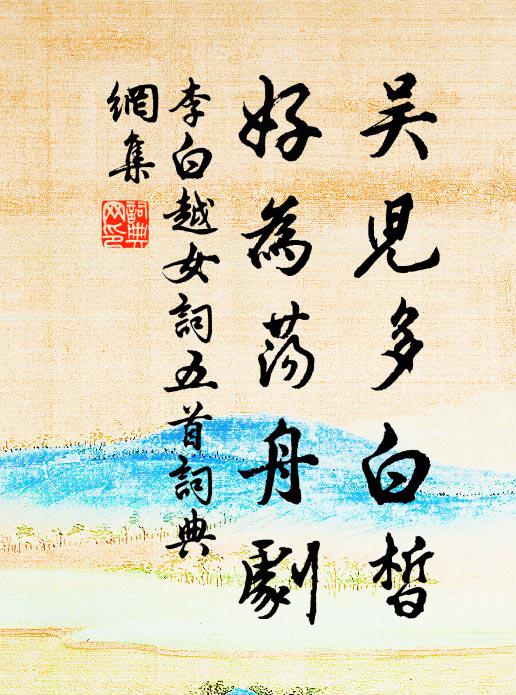 吴兒多白皙
好為蕩舟劇
李白越女詞五首詞典
網集
詞典網印